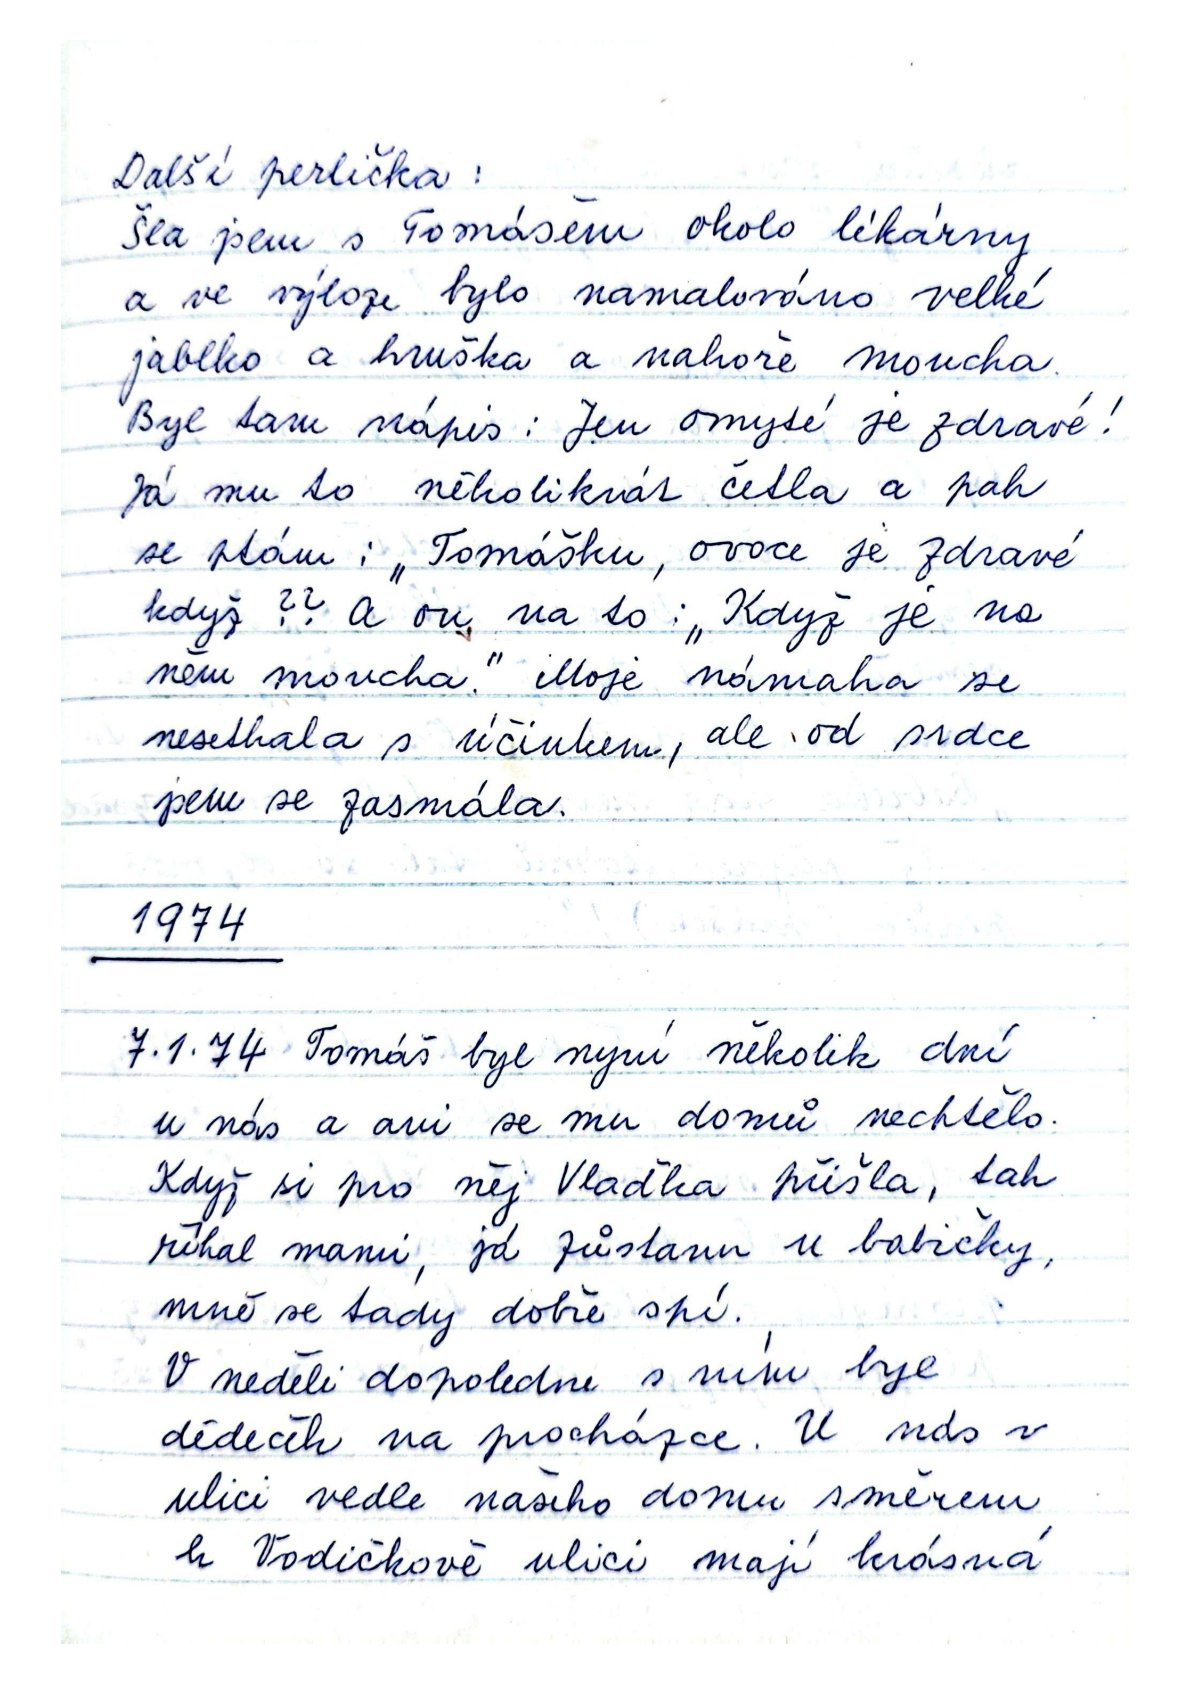 Další perlička:
Šla jsem s Tomášem okolo lékárny
a ve výloze bylo namalováno velké
jablko a hruška a nahoře moucha.
Byl tam nápis: Jen omyté je zdravé!
Já mu to několikrát četla a pak
se ptám: „Tomášku, ovoce je zdravé
když ?? A on na to: „Když je na
něm moucha." Moje námaha se
nesetkala s účinkem, ale od srdce
jsem se zasmála.
1974
7.1.74 Tomáš byl nyní několik dní
u nás a ani se mu domů nechtělo.
Když si pro něj Vlaďka přišla, tak
říkal mami, já zůstanu u babičky,
mně se tady dobře spí.
V neděli dopoledne s ním byl
dědeček na procházce. U nás v
ulici vedle našeho domu směrem
k Vodičkově ulici mají krásná